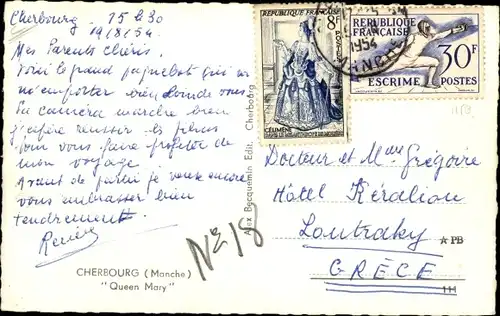 Cherbourg 15 h 30
19/8/54
Mes Parents Chéris.
Voici le grand paquebot qui va
m'emporter bien loin de vous
La caméra marche bien
j'espère réussir les films
pour vous faire profiter de
mon voyage
Avant de partir je veux encore
vous embrasser bien
tendrement
CHERBOURG (Manche)
"Queen Mary"
Nº 18
Alex Becquemin Edit. Cherbourg
RÉPUBLIQUE FRANÇAISE
8F
POSTES
CÉLIMÈNE
1954
MANCHE
RÉPUBLIQUE
FRANÇAISE
30F
ESCRIME POSTES
Docteur et Mme Grégoire
Hôtel Kéralion
Loutraky
PB
GRÈCE